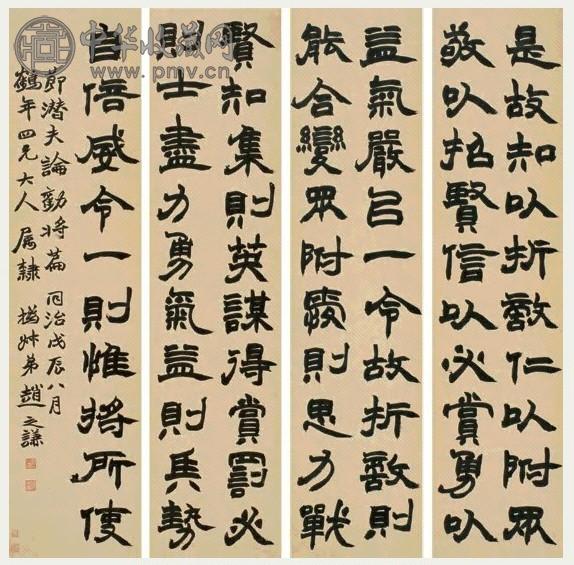 中华收藏网
www.pmv.cn
是故知以折敵仁以附眾
敬以招賢信以必賞勇以
益氣嚴以一令故折敵則
能合變眾附愛則思力戰
賢知集則英謀得賞罰必
則士盡力勇氣益則兵勢
自倍威令一則惟將所使
節潛夫論勸將篇 同治戊辰八月
鶴年四兄大人屬隸 撝叔弟趙之謙